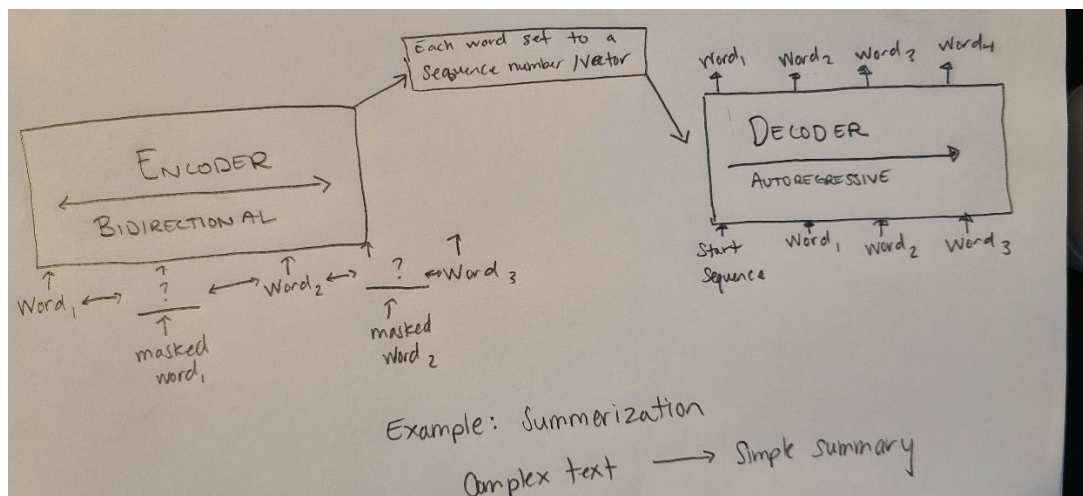 Each word set to a
sequence number / vector
ENCODER
BIDIRECTIONAL
Word₁ ↔ ? ↔ Word₂ ↔ ? ↔ Word₃
masked
word₁
masked
word₂
Word₁ Word₂ Word₃ Word₄
DECODER
AUTOREGRESSIVE
Start
Sequence
Word₁ Word₂ Word₃
Example: Summerization
Complex text → Simple summary